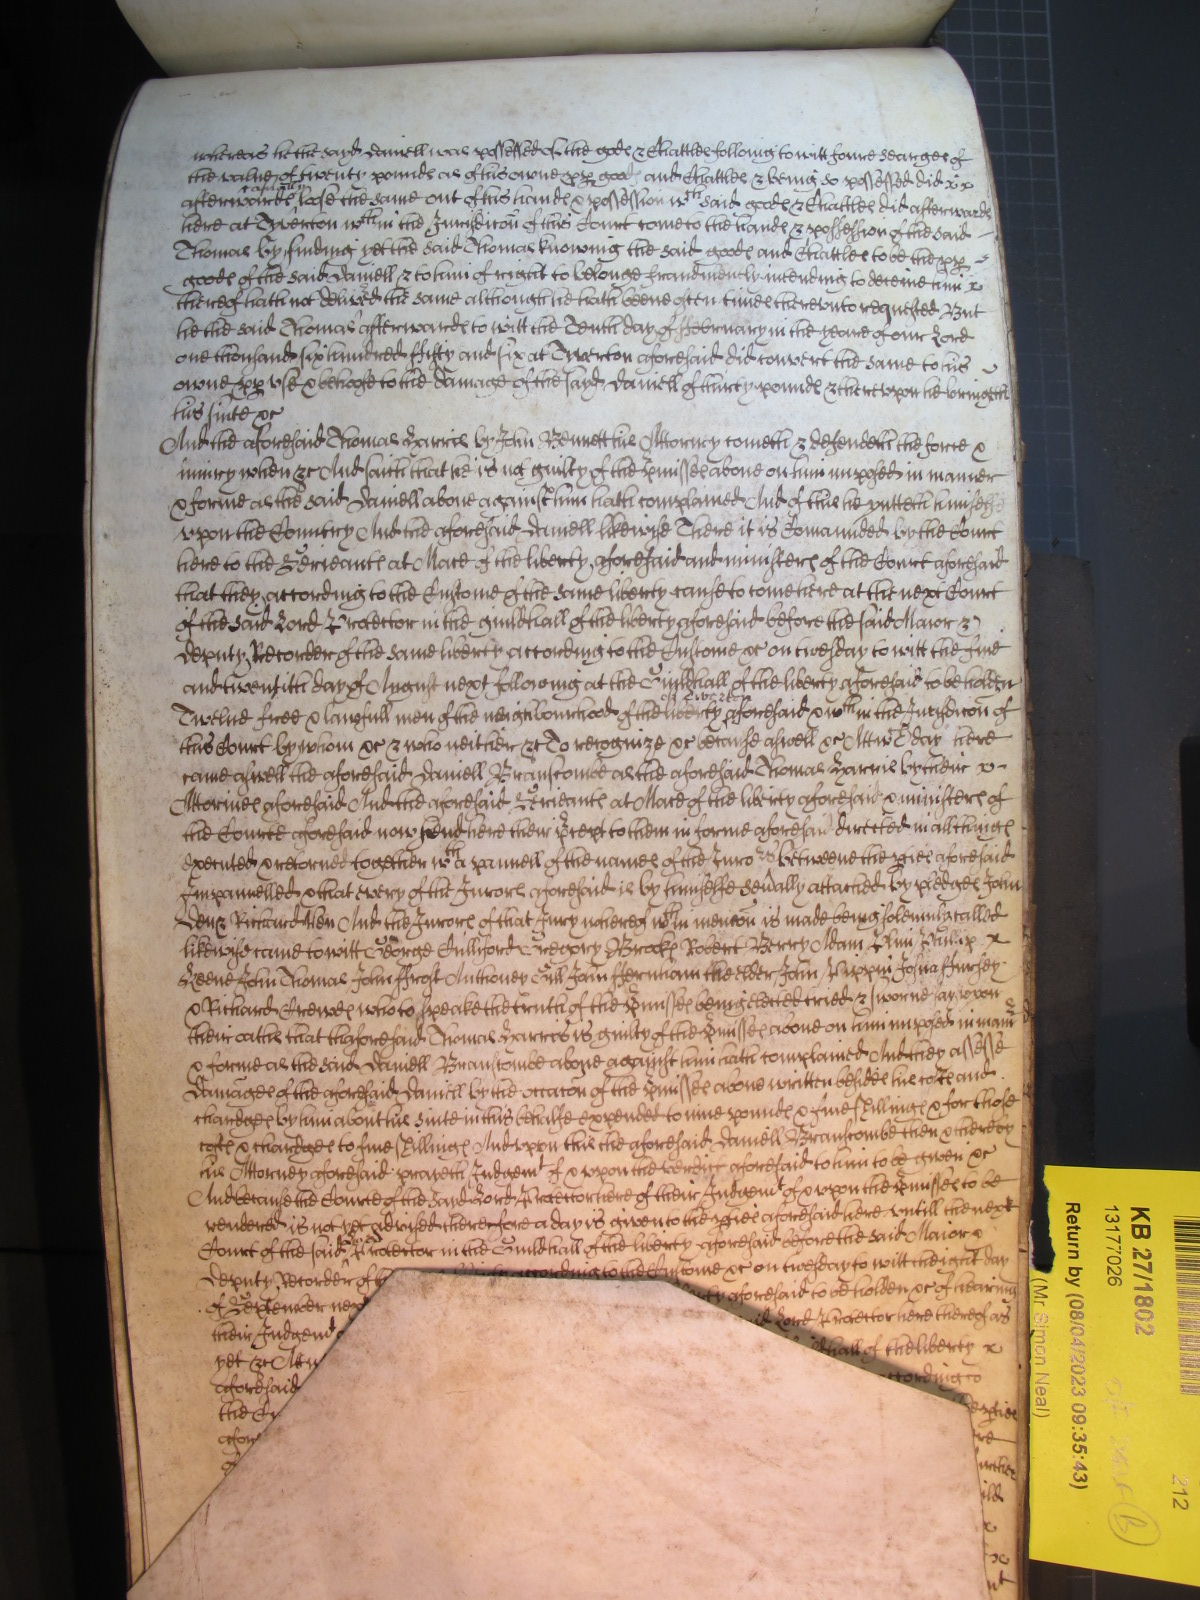 whereas he the sayd Daniell was possessed of the goods & Chattles following to witt fowre searges of
the value of twenty pounds as of his owne pp goods and Chattles & being so possessed did x x
afterwards casually loose the same out of his hands & possession wth said goods & Chattles did afterwards
here at Tiverton wthin the Jurisdiccon of this Court come to the hands & possession of the said
Thomas by finding yet the said Thomas knowing the said goods and Chattles to be the pp
goods of the said Daniell & to him of right to belonge fraudulently intending to deceive him x
thereof hath not delived the same although he hath beene often times therevnto requested But
he the said Thomas afterwards to witt the Tenth day of February in the yeare of our Lord
one thousand six hundred fifty and six at Tiverton aforesaid did convert the same to his
owne pp vse & behoofe to the damage of the sayd Daniell of thirty pounds & therevpon he bringeth
his suite &c
And the aforesaid Thomas Harris by John Bennett his Attorney cometh & defendeth the force &
iniury when &c And saith that he is not guilty of the pmisses above on him imposed in manner
& forme as the said Daniell above against him hath complained And of this he putteth himselfe
vpon the Country And the aforesaid Daniell likewise There it is Comaunded by the Court
here to the Serieants at Mace of the liberty aforesaid and ministers of the Court aforesaid
that they according to the Custome of the same liberty cause to come here at the next Court
of the said Lord Protector in the guildhall of the liberty aforesaid before the said Maior &
Deputy Recorder of the same liberty according to the Custome &c on twesday to witt the five
and twentith day of August next following at the Guildhall of the liberty aforesaid to be holden
Twelve free & lawfull men of the neighbourhood of the liberty aforesaid & wthin the Jurisdiccon of
this Court by whom &c & who neither &c To recognize &c because aswell &c Att wch day here
came aswell the aforesaid Daniell Branscombe as the aforesaid Thomas Harris by their x
Attornies aforesaid And the aforesaid Serieants at Mace of the liberty aforesaid & ministers of
the Courte aforesaid now send here their precept to them in forme aforesaid directed in all things
executed & retorned together wth a pannell of the names of the Juro rs betweene the pties aforesaid
Impannelled & that every of the Jurors aforesaid is by himselfe seually attached by pledges John
Den & Richard Fen And the Jurors of that Jury whereof wthin mencon is made being solemnly called
likewise came to witt George Cullford Gregory Brooke Robert Berry Adam Phillip x
Keene John Thomas John ffrost Anthoney Gill John the elder John Pippin Josua ffursey
& Richard Crewes who to speake the truth of the pmisses being elected tried & sworne say vpon
their oathes that thaforesaid Thomas Harris is guilty of the pmisses above on him imposed in mann
& forme as the said Daniell Branscombe above against him hath complained And they assesse
Damages of the aforesaid Daniell by the occacon of the pmisses above written besides his costs and
chardges by him about his suite in this behalfe expended to nine pounds & five shillings & for those
costs & chardges to five shillings And vpon this the aforesaid Daniell Branscombe then & there by
his Attorney aforesaid prayeth Judgemt of & vpon the verdict aforesaid to him to be given &c
And because the Courte of the sayd Lord Protector here of their Judgemt of & vpon the pmisses to be
rendered is not yet advised therefore a day is given to the pties aforesaid here vntill the next
Court of the said Lord Protector in the Guildhall of the liberty aforesaid before the said Maior &
Deputy Recorder of th according to the Custome &c on twesday to witt the eight day
of September nex aforesaid to be holden &c of hearing
their Judgemt Lord Protector here thereof is
yet &c Att hall of the liberty x
aforesaid according to
the Cu pties
afore
KB 27/1802
13177026
Return by (08/04/2023 09:35:43)
(Mr Simon Neal)
212